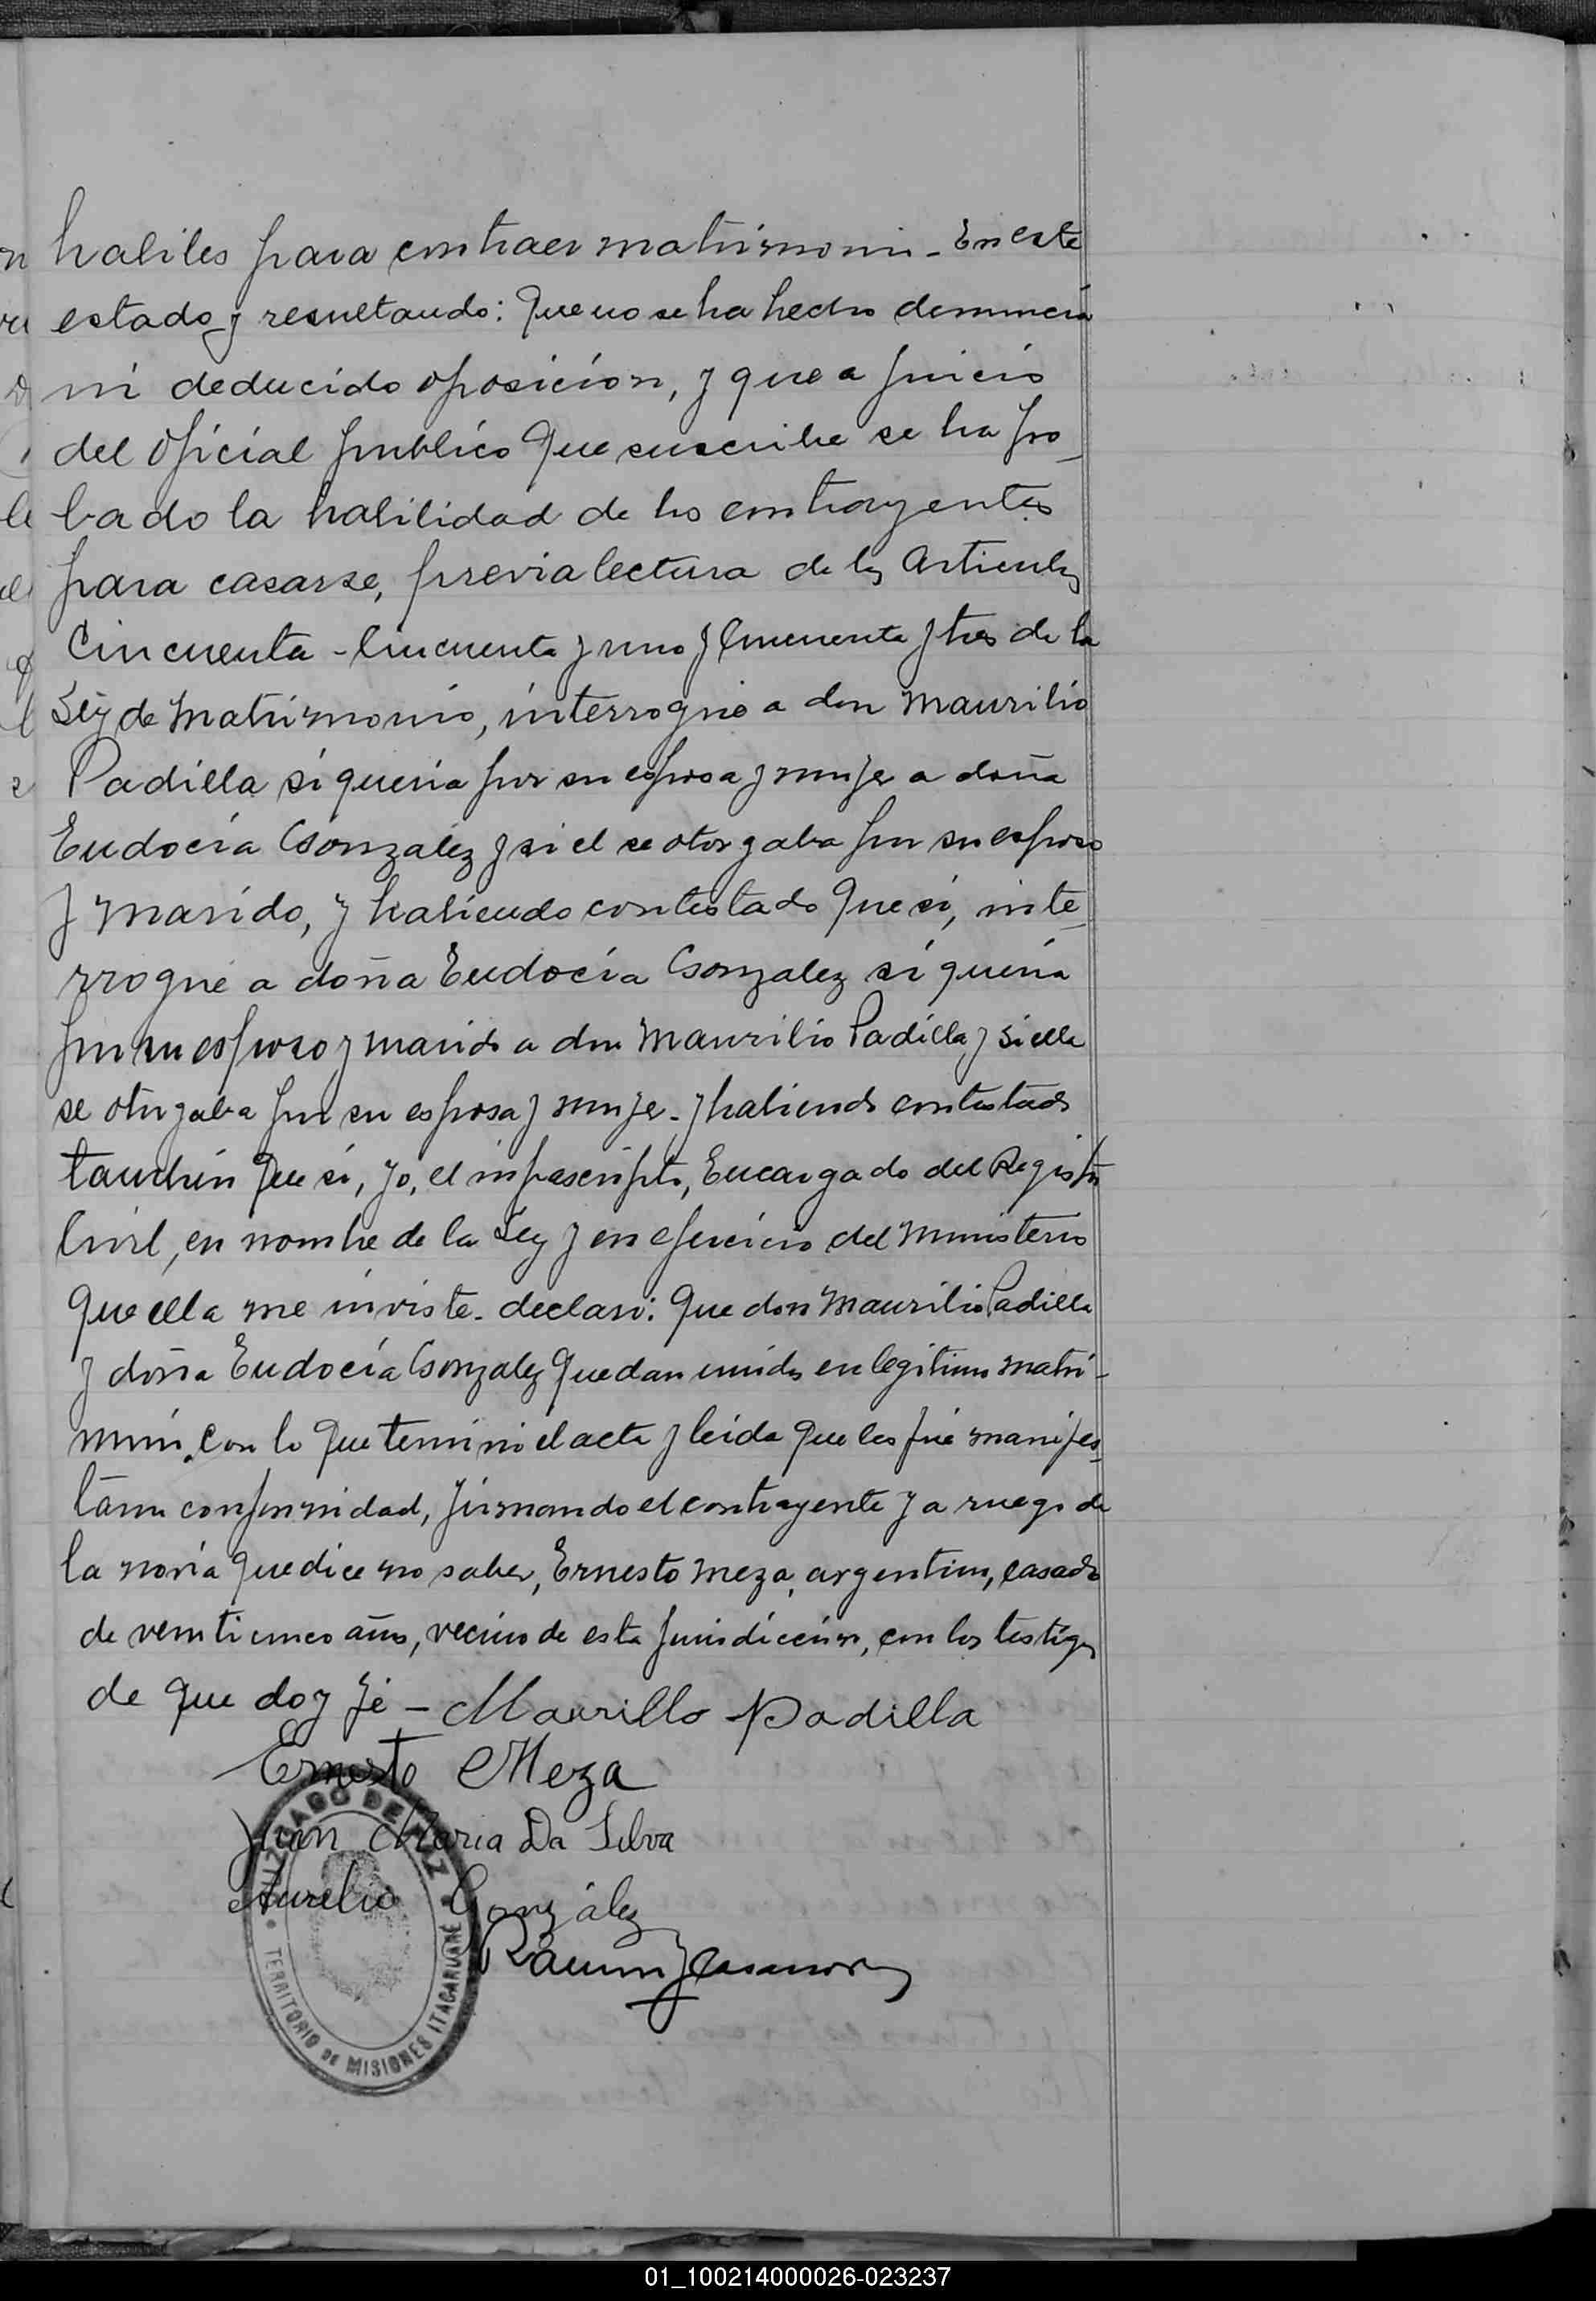 habiles para contraer matrimonio - En este
estado y resultando: Que no se ha hecho denuncia
ni deducido oposición, y que a juicio
del oficial publico que suscribe se ha pro_
bado la habilidad de los contrayentes
para casarse, previa lectura de los articulos
Cincuenta - Cincuenta y uno y Cincuenta y tres de la
Ley de Matrimonio, interrogué a don Maurilio
Padilla si queria por su esposa y mujer a doña
Eudocia Gonzalez y si el se otorgaba por su esposo
y marido, y habiendo contestado que sí, inte_
rrogué a doña Eudocia Gonzalez si queria
por su esposo y marido a don Maurilio Padilla y si ella
se otorgaba por su esposa y mujer - y habiendo contestado
tambien que si, yo, el infrascripto, Encargado del Registro
Civil, en nombre de la Ley y en ejercicio del ministerio
que ella me inviste - declaro: Que don Maurilio Padilla
y doña Eudocia Gonzalez quedan unidos en legitimo matri-
monio. Con lo que terminó el acta y leida que les fué manifes_
taron conformidad, firmando el contrayente y a ruego de
la novia que dice no saber, Ernesto Meza, argentino, casado
de veinticinco años, vecino de esta jurisdicción, con los testigos
de que doy fé - Maurillo Padilla
Ernesto Meza
Juan Maria Da Silva
Aurelio González
Ramon J Casanova
JUZGADO DE PAZ
TERRITORIO DE MISIONES ITACARUARE
01_100214000026-023237